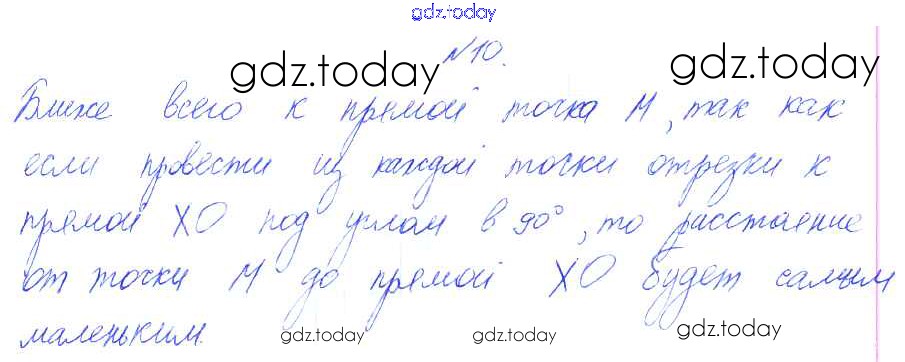 gdz.today
№10.
gdz.today gdz.today
Ближе всего к прямой точка М, так как
если провести из каждой точки отрезки к
прямой ХО под углом в 90°, то расстояние
от точки М до прямой ХО будет самым
маленьким.
gdz.today gdz.today gdz.today